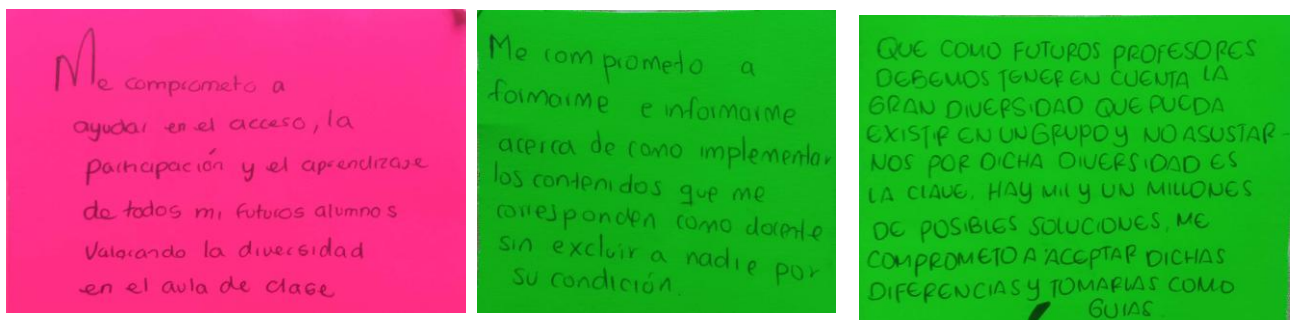 Me comprometo a
ayudar en el acceso, la
participación y el aprendizaje
de todos mi futuros alumnos
valorando la diversidad
en el aula de clase
Me comprometo a
formarme e informarme
acerca de como implementar
los contenidos que me
corresponden como docente
sin excluir a nadie por
su condición.
QUE COMO FUTUROS PROFESORES
DEBEMOS TENER EN CUENTA LA
GRAN DIVERSIDAD QUE PUEDA
EXISTIR EN UN GRUPO Y NO ASUSTAR-
NOS POR DICHA DIVERSIDAD ES
LA CLAVE. HAY MIL Y UN MILLONES
DE POSIBLES SOLUCIONES. ME
COMPROMETO A ACEPTAR DICHAS
DIFERENCIAS Y TOMARLAS COMO
GUIAS.